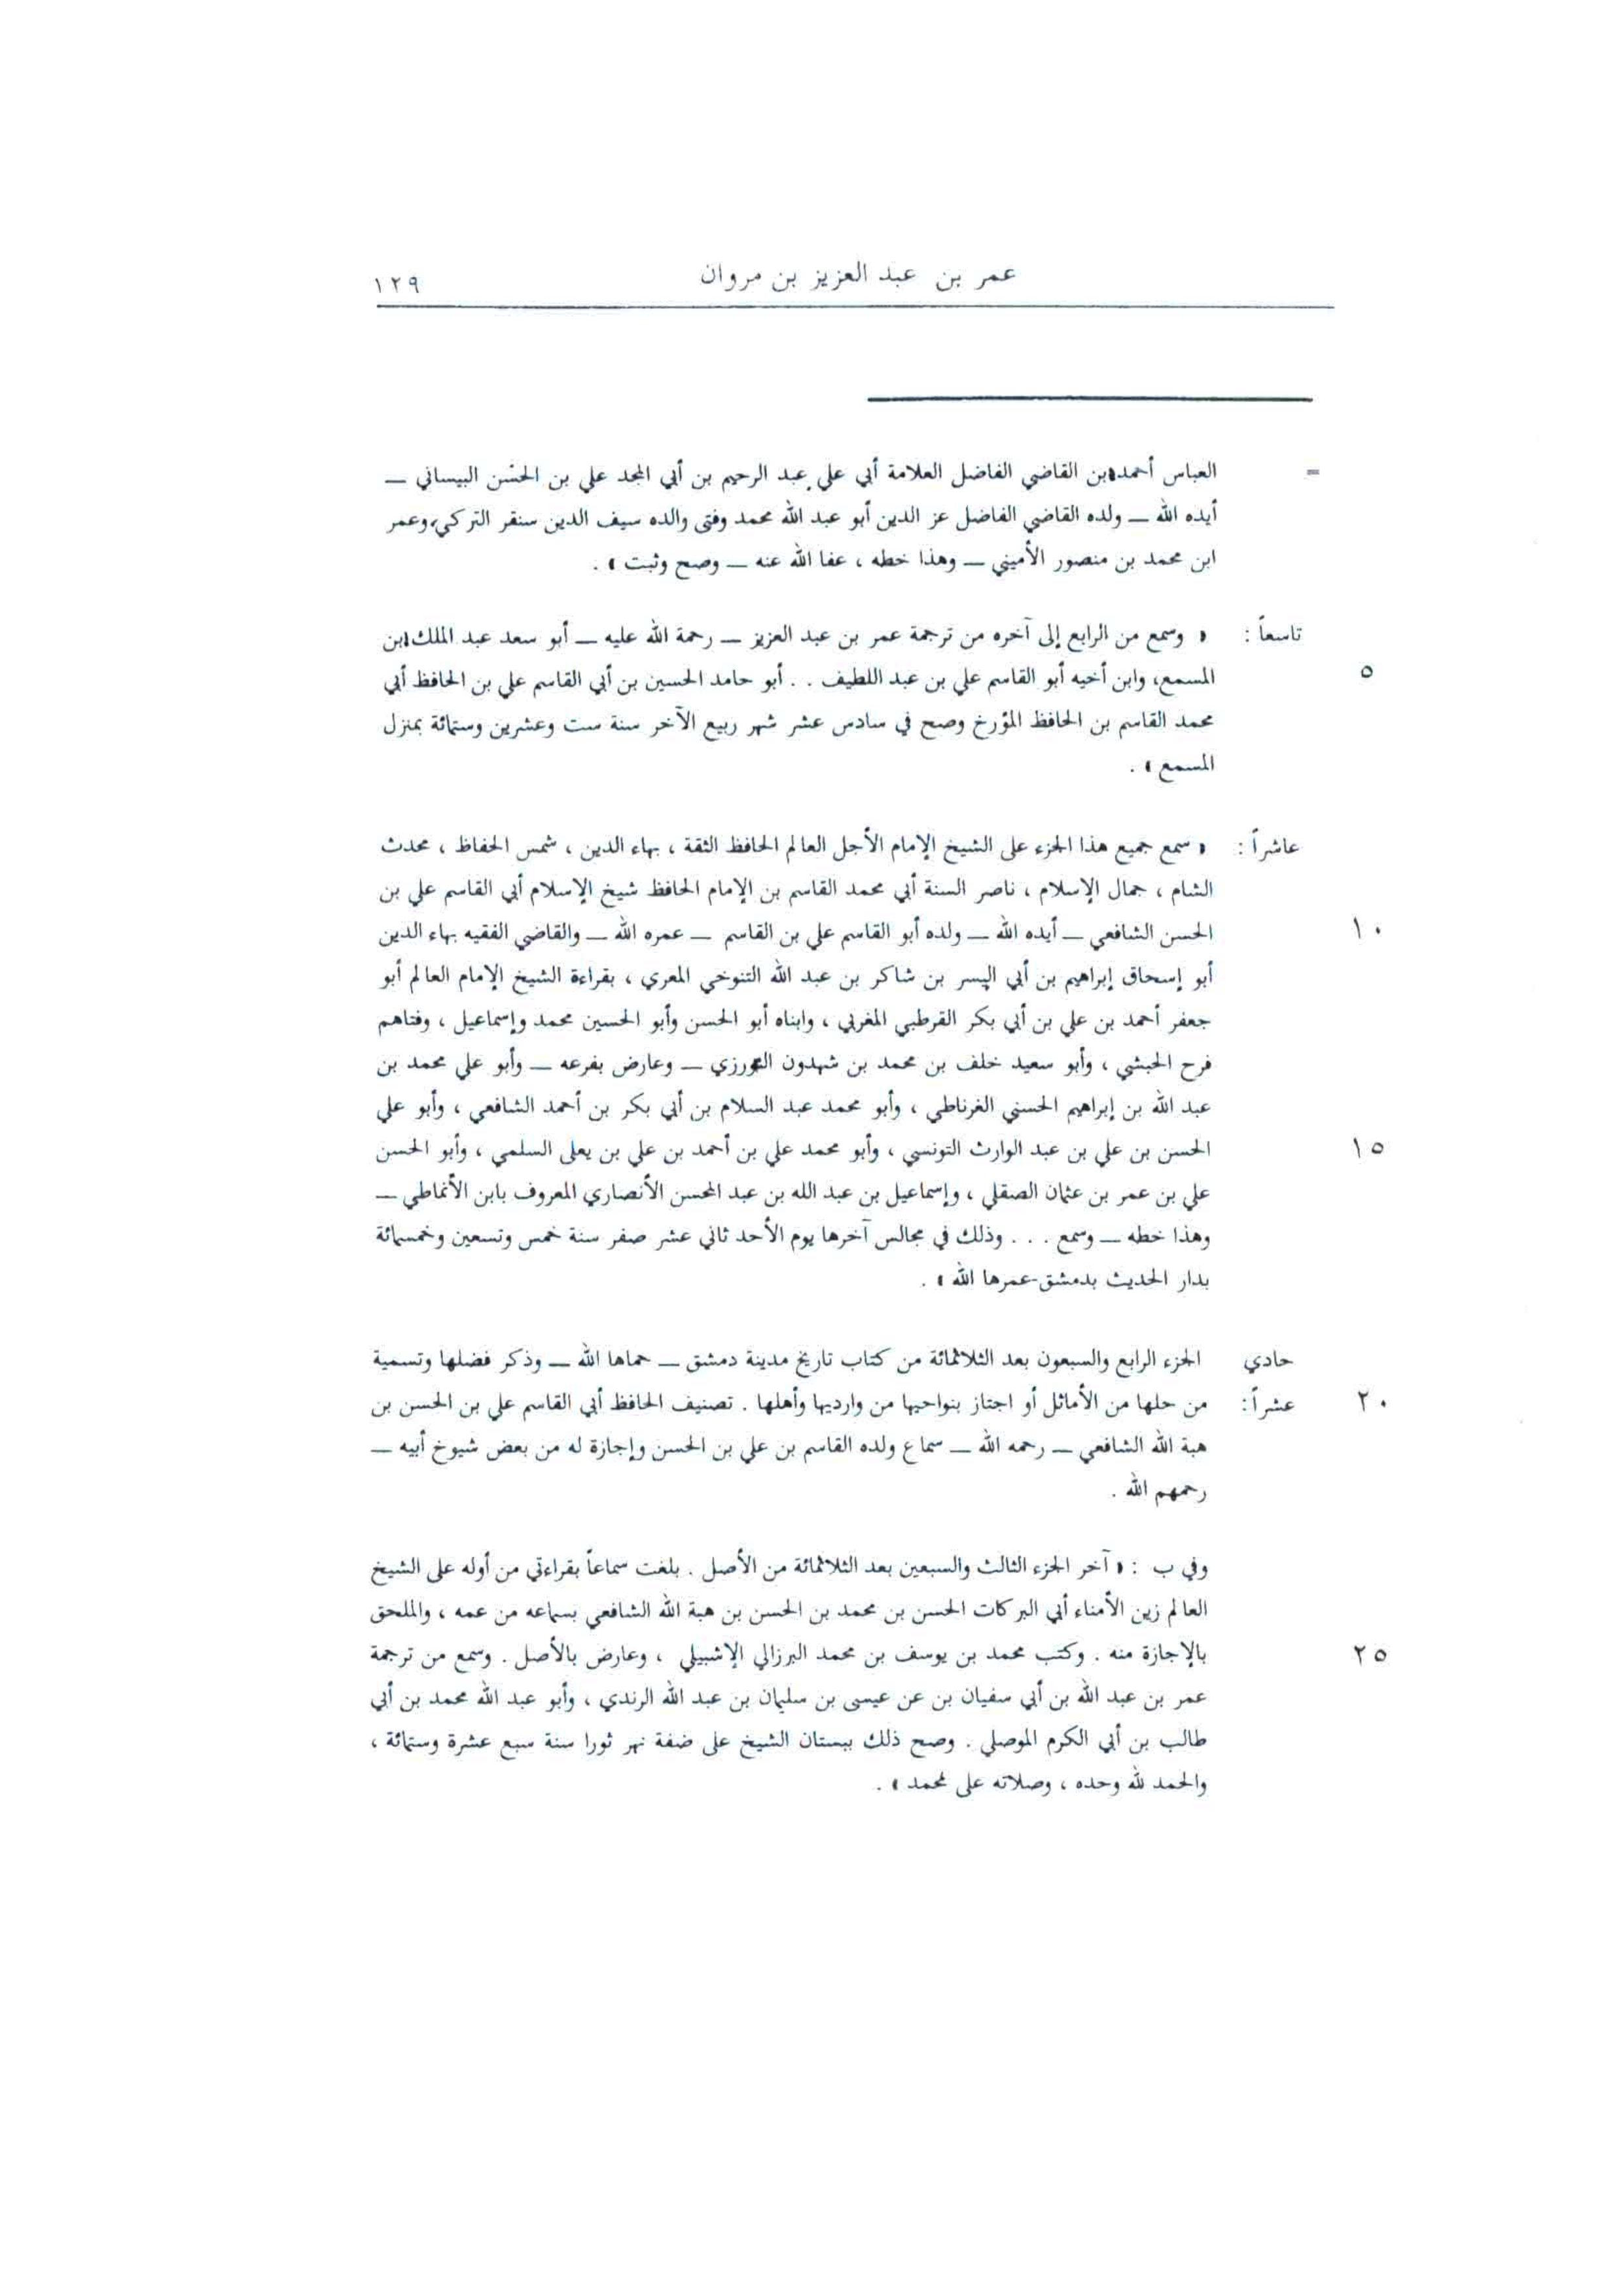 عمر بن عبد العزيز بن مروان ١٢٩
= العباس أحمد بن القاضي الفاضل العلامة أبي علي عبد الرحيم بن أبي المجد علي بن الحسن البيساني —
أيده الله — ولده القاضي الفاضل عز الدين أبو عبد الله محمد وفتى والده سيف الدين سنقر التركي، وعمر
ابن محمد بن منصور الأميني — وهذا خطه ، عفا الله عنه — وصح وثبت » .
تاسعاً : « وسمع من الرابع إلى آخره من ترجمة عمر بن عبد العزيز — رحمة الله عليه — أبو سعد عبد الملك ابن
٥ المسمع، وابن أخيه أبو القاسم علي بن عبد اللطيف . . أبو حامد الحسين بن أبي القاسم علي بن الحافظ أبي
محمد القاسم بن الحافظ المؤرخ وصح في سادس عشر شهر ربيع الآخر سنة ست وعشرين وستمائة بمنزل
المسمع » .
عاشراً : « سمع جميع هذا الجزء على الشيخ الإمام الأجل العالم الحافظ الثقة ، بهاء الدين ، شمس الحفاظ ، محدث
الشام ، جمال الإسلام ، ناصر السنة أبي محمد القاسم بن الإمام الحافظ شيخ الإسلام أبي القاسم علي بن
١٠ الحسن الشافعي — أيده الله — ولده أبو القاسم علي بن القاسم — عمره الله — والقاضي الفقيه بهاء الدين
أبو إسحاق إبراهيم بن أبي اليسر بن شاكر بن عبد الله التنوخي المعري ، بقراءة الشيخ الإمام العالم أبو
جعفر أحمد بن علي بن أبي بكر القرطبي المغربي ، وابناه أبو الحسن وأبو الحسين محمد وإسماعيل ، وفتاهم
فرح الحبشي ، وأبو سعيد خلف بن محمد بن شهدون — وعارض بفرعه — وأبو علي محمد بن
عبد الله بن إبراهيم الحسني الغرناطي ، وأبو محمد عبد السلام بن أبي بكر بن أحمد الشافعي ، وأبو علي
١٥ الحسن بن علي بن عبد الوارث التونسي ، وأبو محمد علي بن أحمد بن علي بن يعلى السلمي ، وأبو الحسن
علي بن عمر بن عثمان الصقلي ، وإسماعيل بن عبد الله بن عبد المحسن الأنصاري المعروف بابن الأنماطي —
وهذا خطه — وسمع . . . وذلك في مجالس آخرها يوم الأحد ثاني عشر صفر سنة خمس وتسعين وخمسمائة
بدار الحديث بدمشق-عمرها الله » .
حادي الجزء الرابع والسبعون بعد الثلاثمائة من كتاب تاريخ مدينة دمشق — حماها الله — وذكر فضلها وتسمية
٢٠ عشراً: من حلها من الأماثل أو اجتاز بنواحيها من وارديها وأهلها . تصنيف الحافظ أبي القاسم علي بن الحسن بن
هبة الله الشافعي — رحمه الله — سماع ولده القاسم بن علي بن الحسن وإجازة له من بعض شيوخ أبيه —
رحمهم الله .
وفي ب : « آخر الجزء الثالث والسبعين بعد الثلاثمائة من الأصل . بلغت سماعاً بقراءتي من أوله على الشيخ
العالم زين الأمناء أبي البركات الحسن بن محمد بن الحسن بن هبة الله الشافعي بسماعه من عمه ، والملحق
٢٥ بالإجازة منه . وكتب محمد بن يوسف بن محمد البرزالي الإشبيلي ، وعارض بالأصل . وسمع من ترجمة
عمر بن عبد الله بن أبي سفيان بن عن عيسى بن سليمان بن عبد الله الرندي ، وأبو عبد الله محمد بن أبي
طالب بن أبي الكرم الموصلي . وصح ذلك ببستان الشيخ على ضفة نهر ثورا سنة سبع عشرة وستمائة ،
والحمد لله وحده ، وصلاته على محمد » .